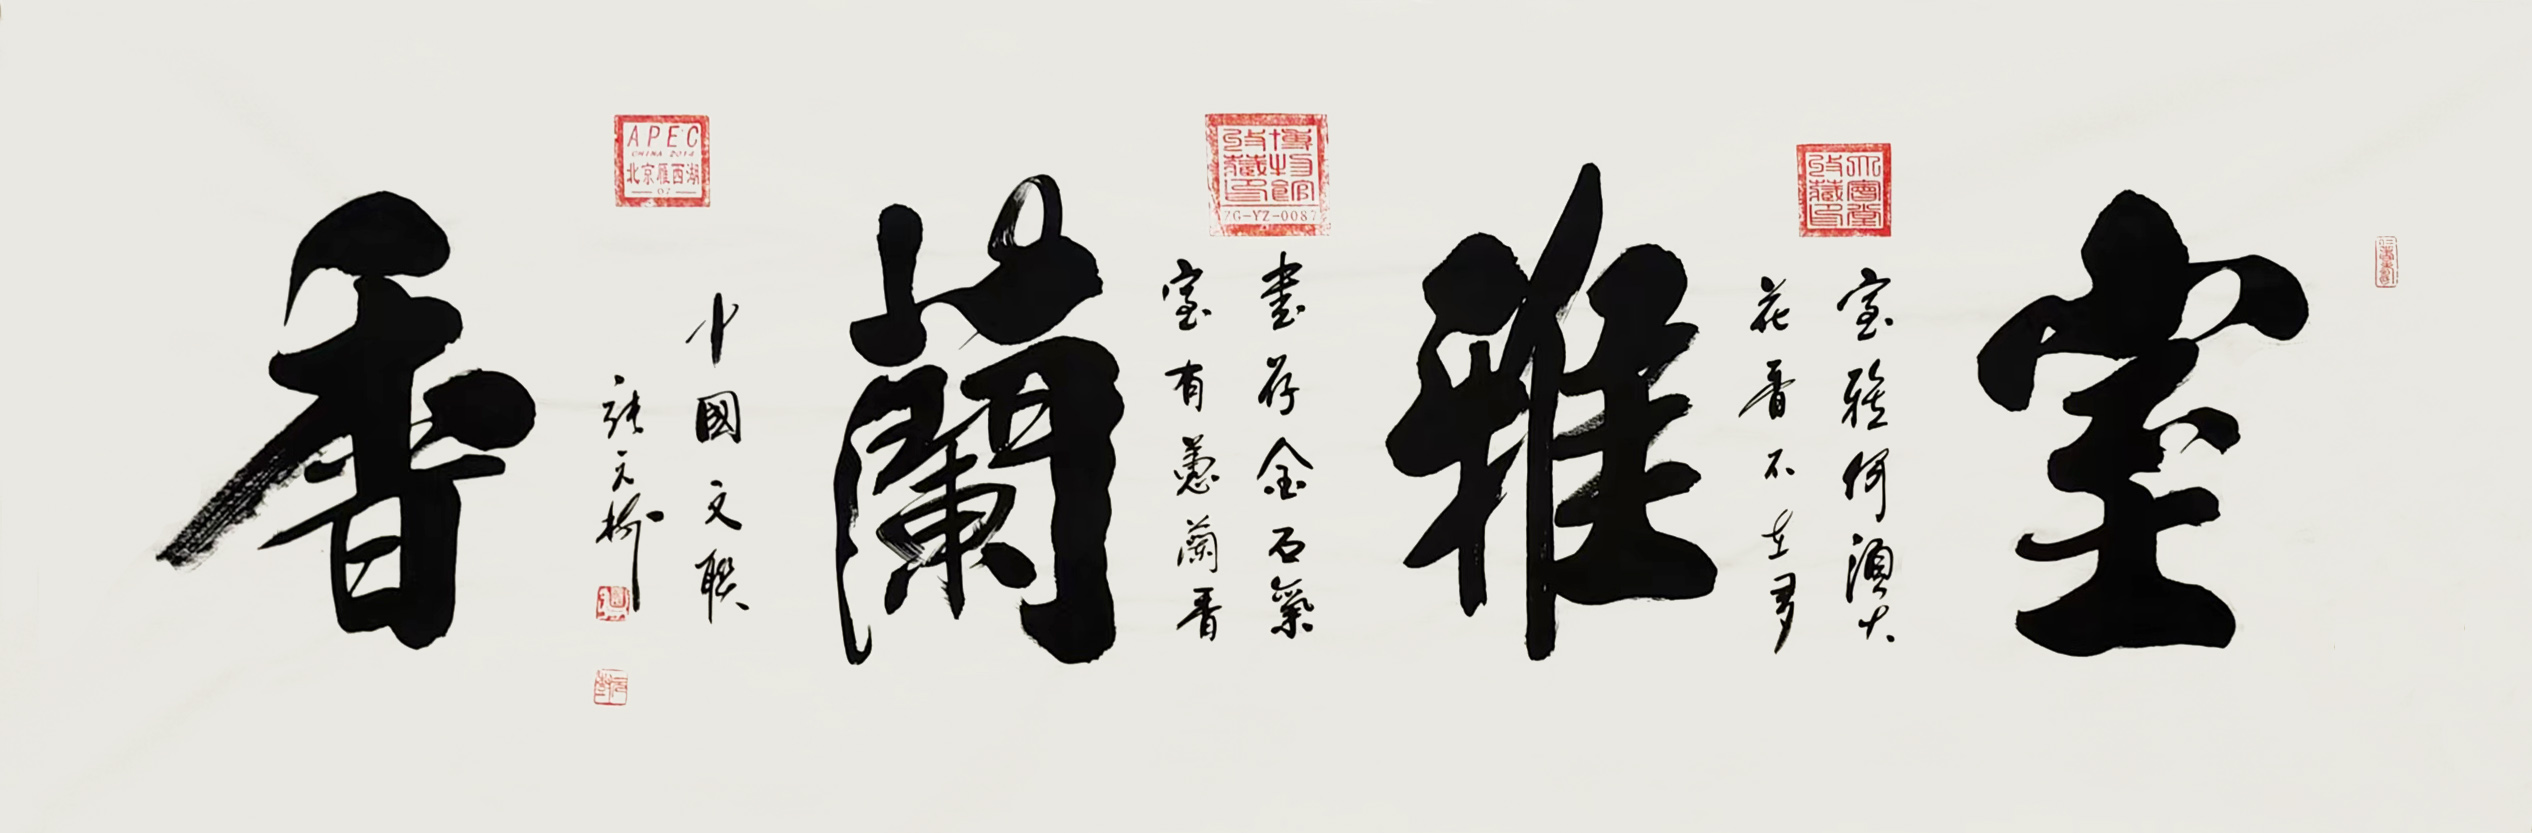 室
大會堂
收藏印
室雅何須大
花香不在多
雅
博物館
收藏印
ZG-YZ-0087
書存金石氣
室有蕙蘭香
蘭
APEC
CHINA 2014
北京雁西湖
07
中國文聯
張元彬
香